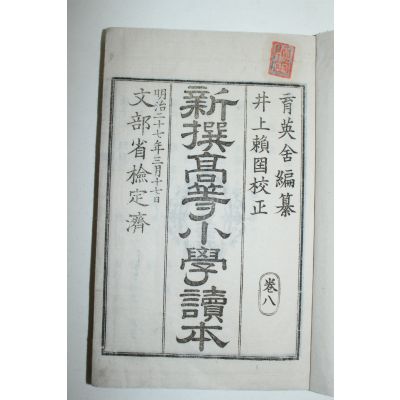 育英舎編纂
井上頼囶校正
巻八
新撰高等小學讀本
明治二十七年三月十七日
文部省檢定濟